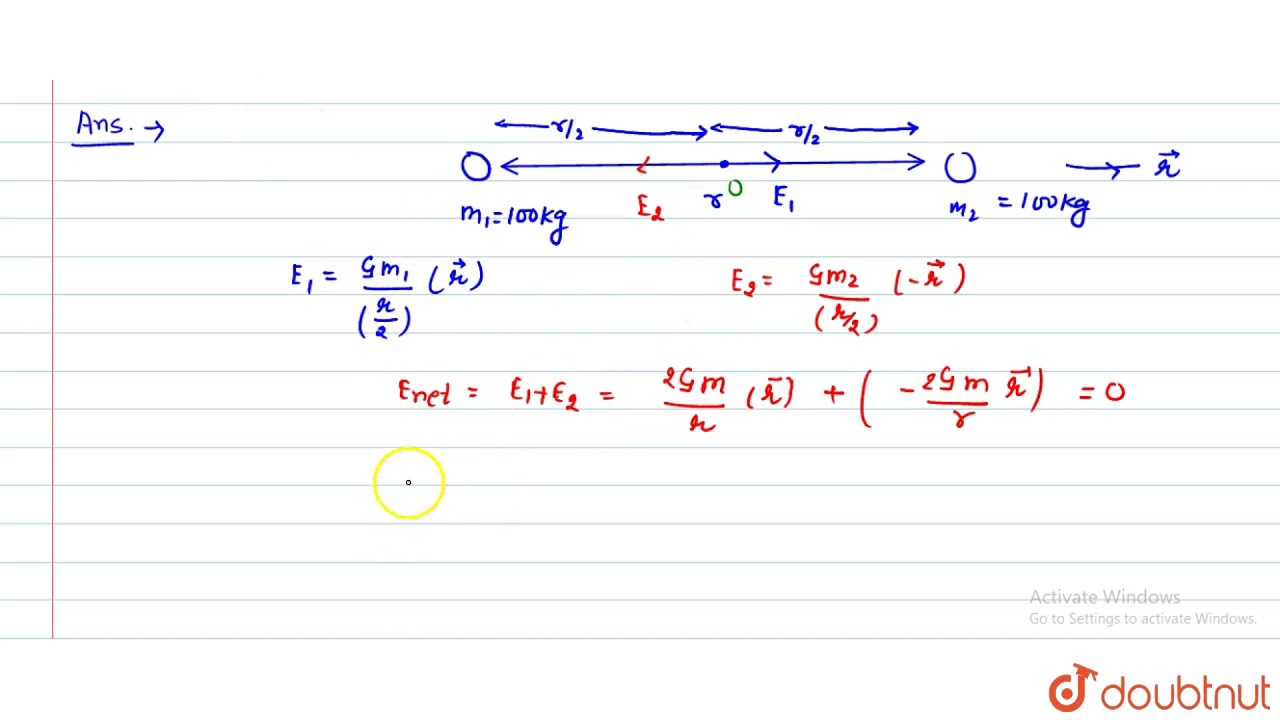 Ans. →
r/2 r/2
r⃗
E₂ r O E₁
m₁=100kg m₂ =100kg
E₁ = Gm₁/(r/2) (r⃗) E₂= Gm₂/(r/2) (-r⃗)
Enet = E₁+E₂ = 2Gm/r (r⃗) + (-2Gm/r r⃗) = 0
Activate Windows
Go to Settings to activate Windows.
doubtnut